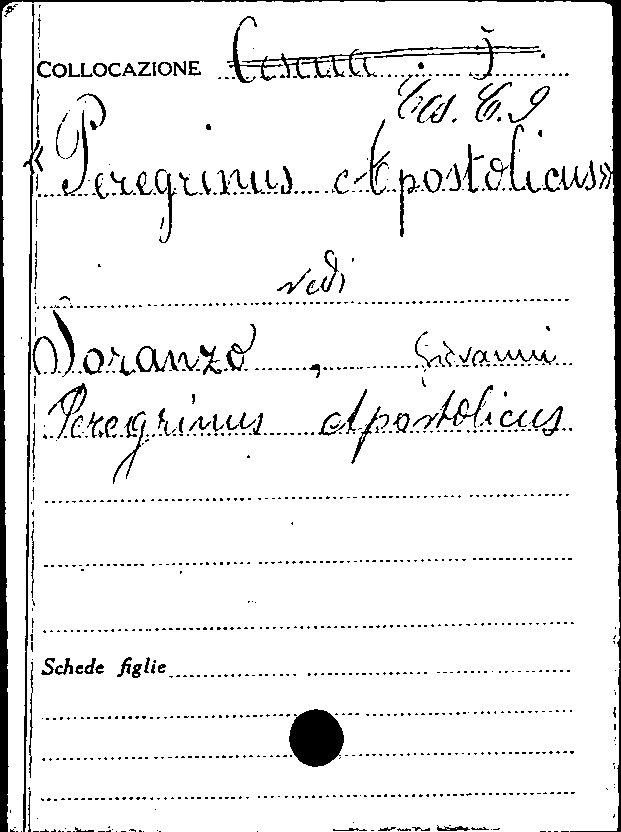 COLLOCAZIONE Cesena . 5.
Ces. C. 9
« Peregrinus Apostolicus»
vedi
Soranzo , Giovanni
Peregrinus Apostolicus
Schede figlie